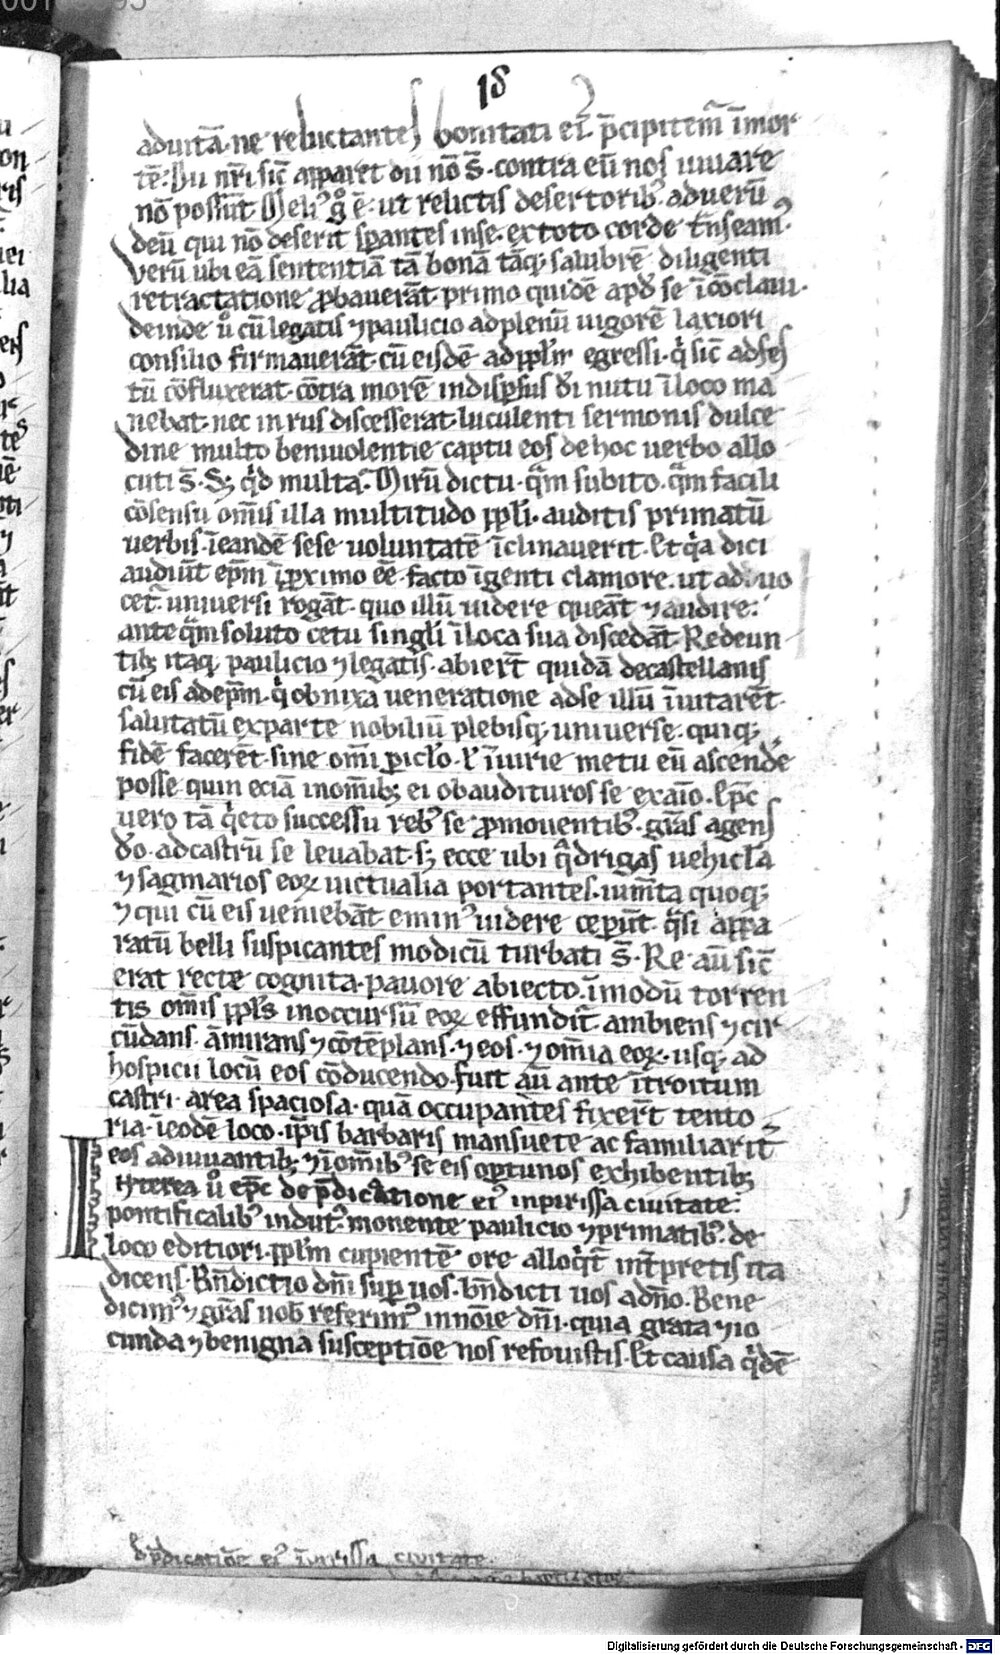 18
ad uitā. ne reluctantes bonitati ei᷒ p̄cipitem̄ī mor
tē. Dii nr̄i sic̄ apparet dii nō s̄. contra eū nos iuuare
nō possūt. Meli᷒ g̊ ē. ut relictis desertorib᷒. ad uerū
deū qui nō deserit sꝑantes in se. ex toto corde tn̄seam᷒.
Verū ubi eā sententiā tā bonā tāq; salubrē diligenti
retractatione ꝓbauerāt. primo quidē apd̄ se ī cōclaui.
deinde u̾o cū legatis ⁊ paulicio ad plenū uigorē laxiori
consilio firmauerāt. cū eisdē ad ppl̄m egressi. qͥ sic̄ ad fes
tū cōfluxerat. cōtra morē indisꝑsus dī nutu ī loco ma
nebat. nec in rus discesserat. luculenti sermonis dulce
dine multo beniuolentie captu eos de hoc uerbo allo
cuti s̄. S; qͥd multa. Mirū dictu. qͣm subito. qͣm facili
cōsensu om̄is illa multitudo ppl̄i. auditis primatū
uerbis. ī eandē sese uoluntatē īclinauerit. Et qͥa dici
audiūt ep̄m ī ꝓximo eē. facto īgenti clamore. ut aduo
cet᷒. uniuersi rogāt. quo illū uidere queāt ⁊ audire.
ante qͣm soluto cetu singl̄i ī loca sua discedāt. Redeun
tib; itaq; paulicio ⁊ legatis. abiert̄ quidā de castellanis
cū eis ad ep̄m. qͥ obnixa ueneratione ad se illū īuitarēt.
salutatū ex parte nobiliū plebisq; uniuerse. quiq;
fidē facerēt. sine om̄i ꝑicl̄o. l̄ īiurie metu eū ascende᷒
posse quin eciā in om̄ib; ei obaudituros se ex aīo. Ep̄c
uero tā qͥeto successu reb᷒ se ꝓmouentib᷒. grās agens
do. ad castrū se leuabat. s; ecce ubi qͣdrigas uehicl̄a
⁊ sagmarios eoꝝ uictualia portantes. iumta quoq;
⁊ qui cū eis ueniebāt emin᷒ uidere ceꝑūt. qͣsi appa
ratū belli suspicantes modicū turbati s̄. Re aū sic̄
erat recte cognita. pauore abiecto. ī modū torren
tis om̄is ppl̄s in occursū eoꝝ effundit᷒. ambiens ⁊ cir
cūdans. āmirans ⁊ cōtēplans. ⁊ eos. ⁊ om̄ia eoꝝ. usq; ad
hospicii locū eos cōducendo. fuit aū ante ītroitum
castri. area spaciosa. quā occupantes fixer̄t tento
ria. ī eodē loco. ip̄is barbaris mansuete ac familiarit᷒
eos adiuuantib; ⁊ ī om̄ib᷒ se eis oportunos exhibentib;
Interea u̾o ep̄c de p̄dicatione ei᷒ in pirissa ciuitate.
pontificalib᷒ indut᷒. monente paulicio ⁊ primatib᷒. de
loco editiori. ppl̄m cupientē ore alloqͥt᷒ int̄pretis ita
dicens. Bn̄dictio dn̄i suꝑ uos. bn̄dicti uos a dn̄o. Bene
dicim᷒ ⁊ grās uob̄ referim᷒ in nōie dn̄i. quia grata ⁊ io
cunda ⁊ benigna susceptiōe nos refouistis. Et causa qͥdē
de p̄dicatiōe ei᷒ in pirissa ciuitate.
Digitalisierung gefördert durch die Deutsche Forschungsgemeinschaft - DFG